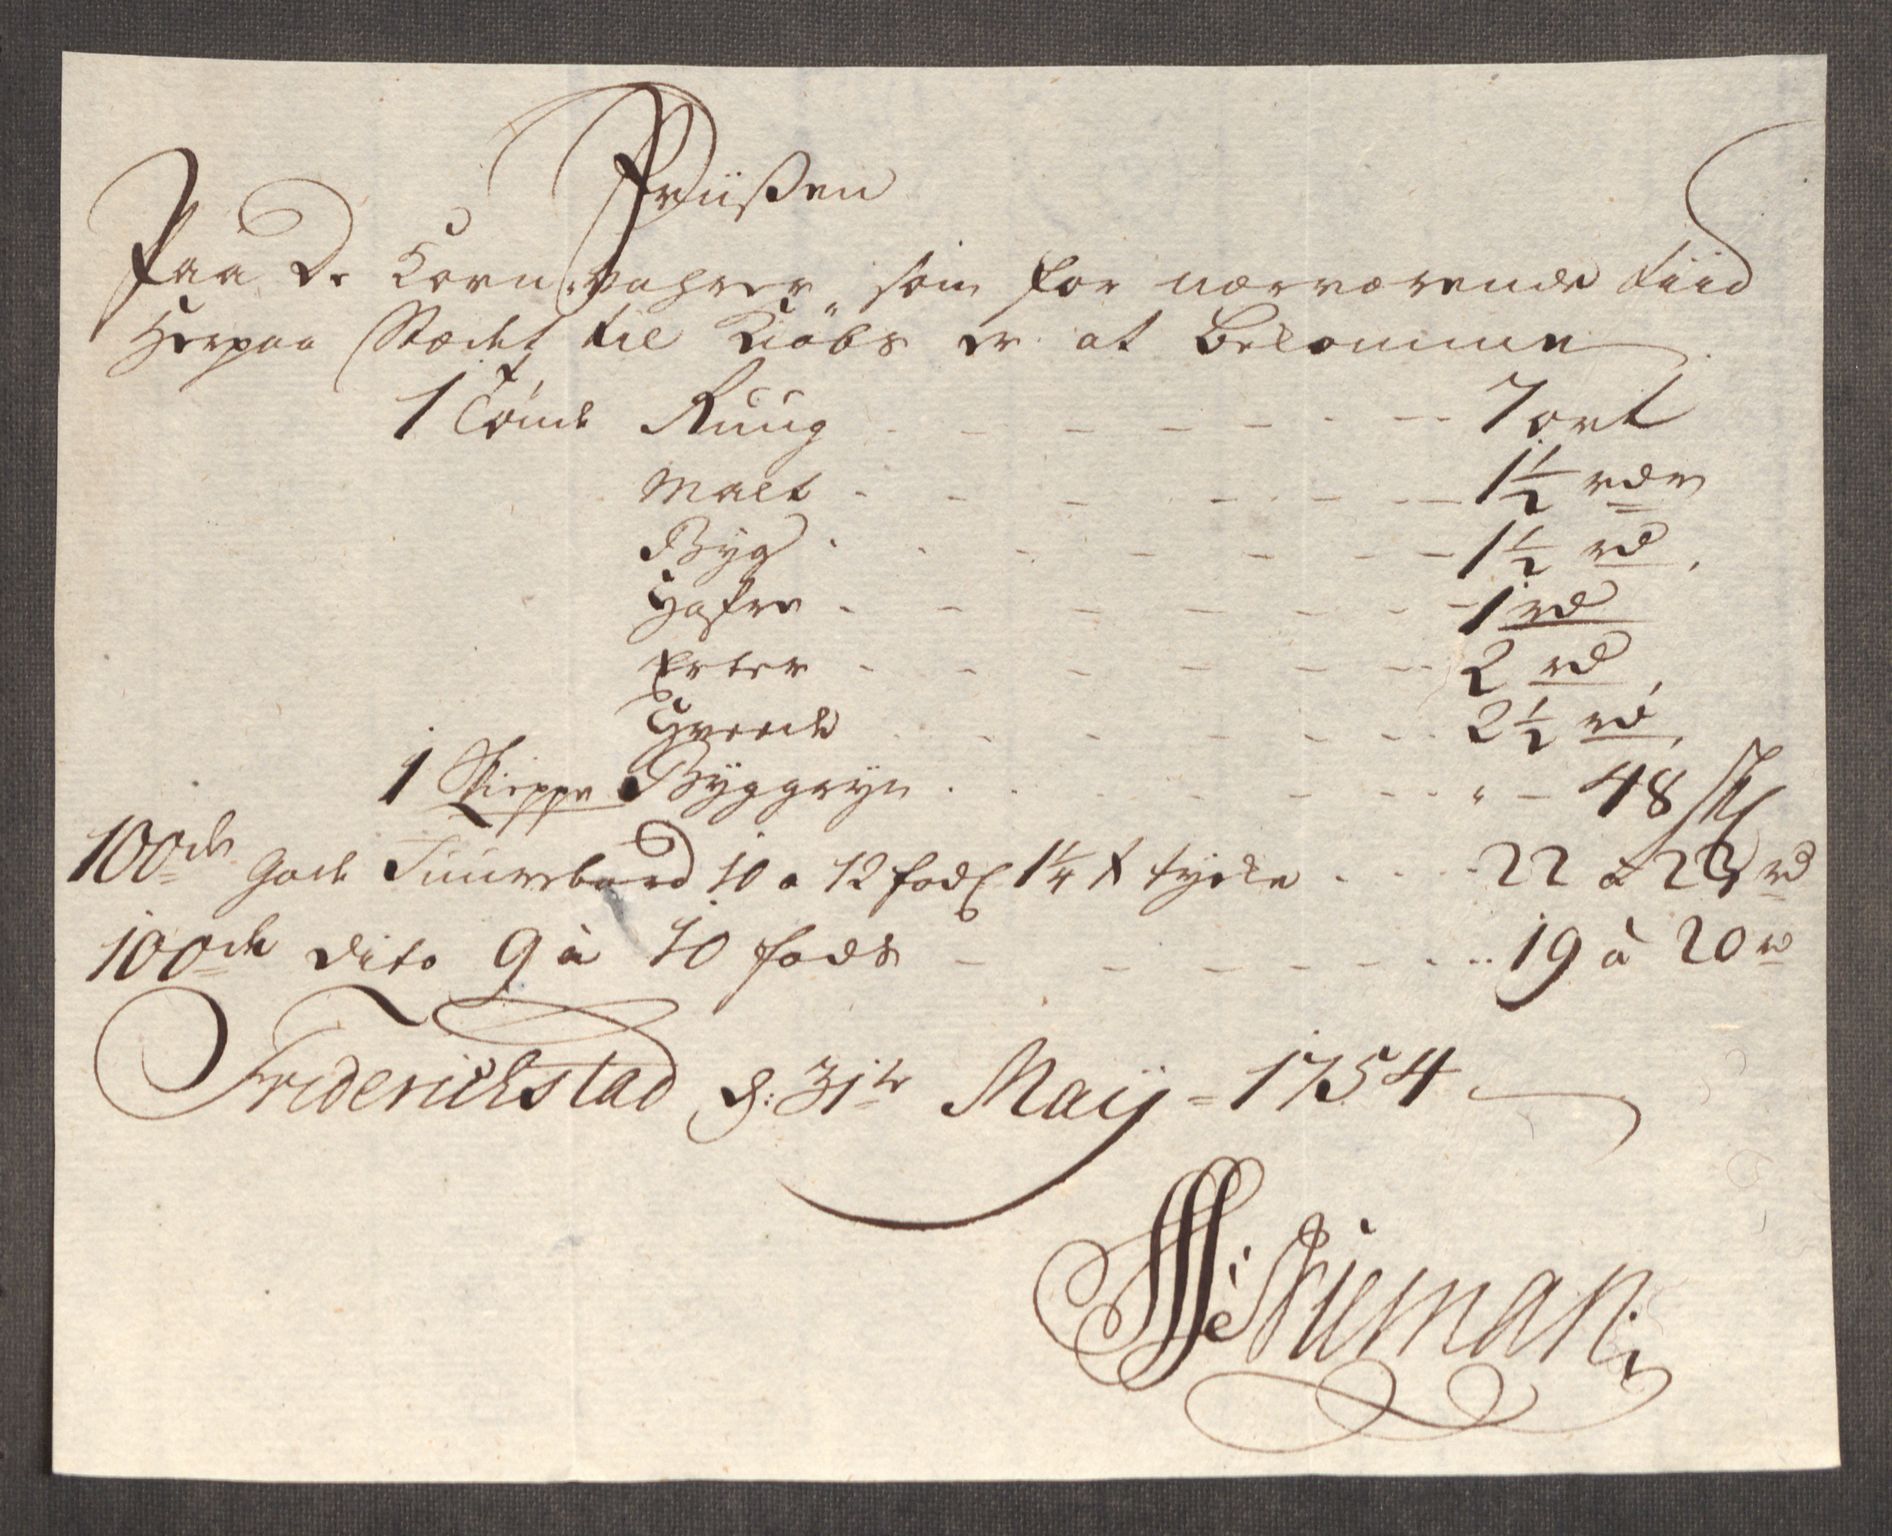 Priißen
Paa De Korn-Vahrer, som for nærværende tiid
Herpaa Stædet til Kiöbs er at bekomme
1 Tønde Ruug - - - 7 ort
Malt - - - 1½ rdr
Byg - - - 1½ rd
Hafre - - - 1 rd
Erter - - - 2 rd
Hvede - - - 2½ rd
1 Skieppe Byggryn - - - " - 48 sk
100de gode Furrebord 10 a 12 fods 1¼ t tycke - - - 22 a 23 rd
100de dito 9 à 10 fods - - - 19 à 20 rd
Friderichstad d: 31te Maij - 1754
Stuman